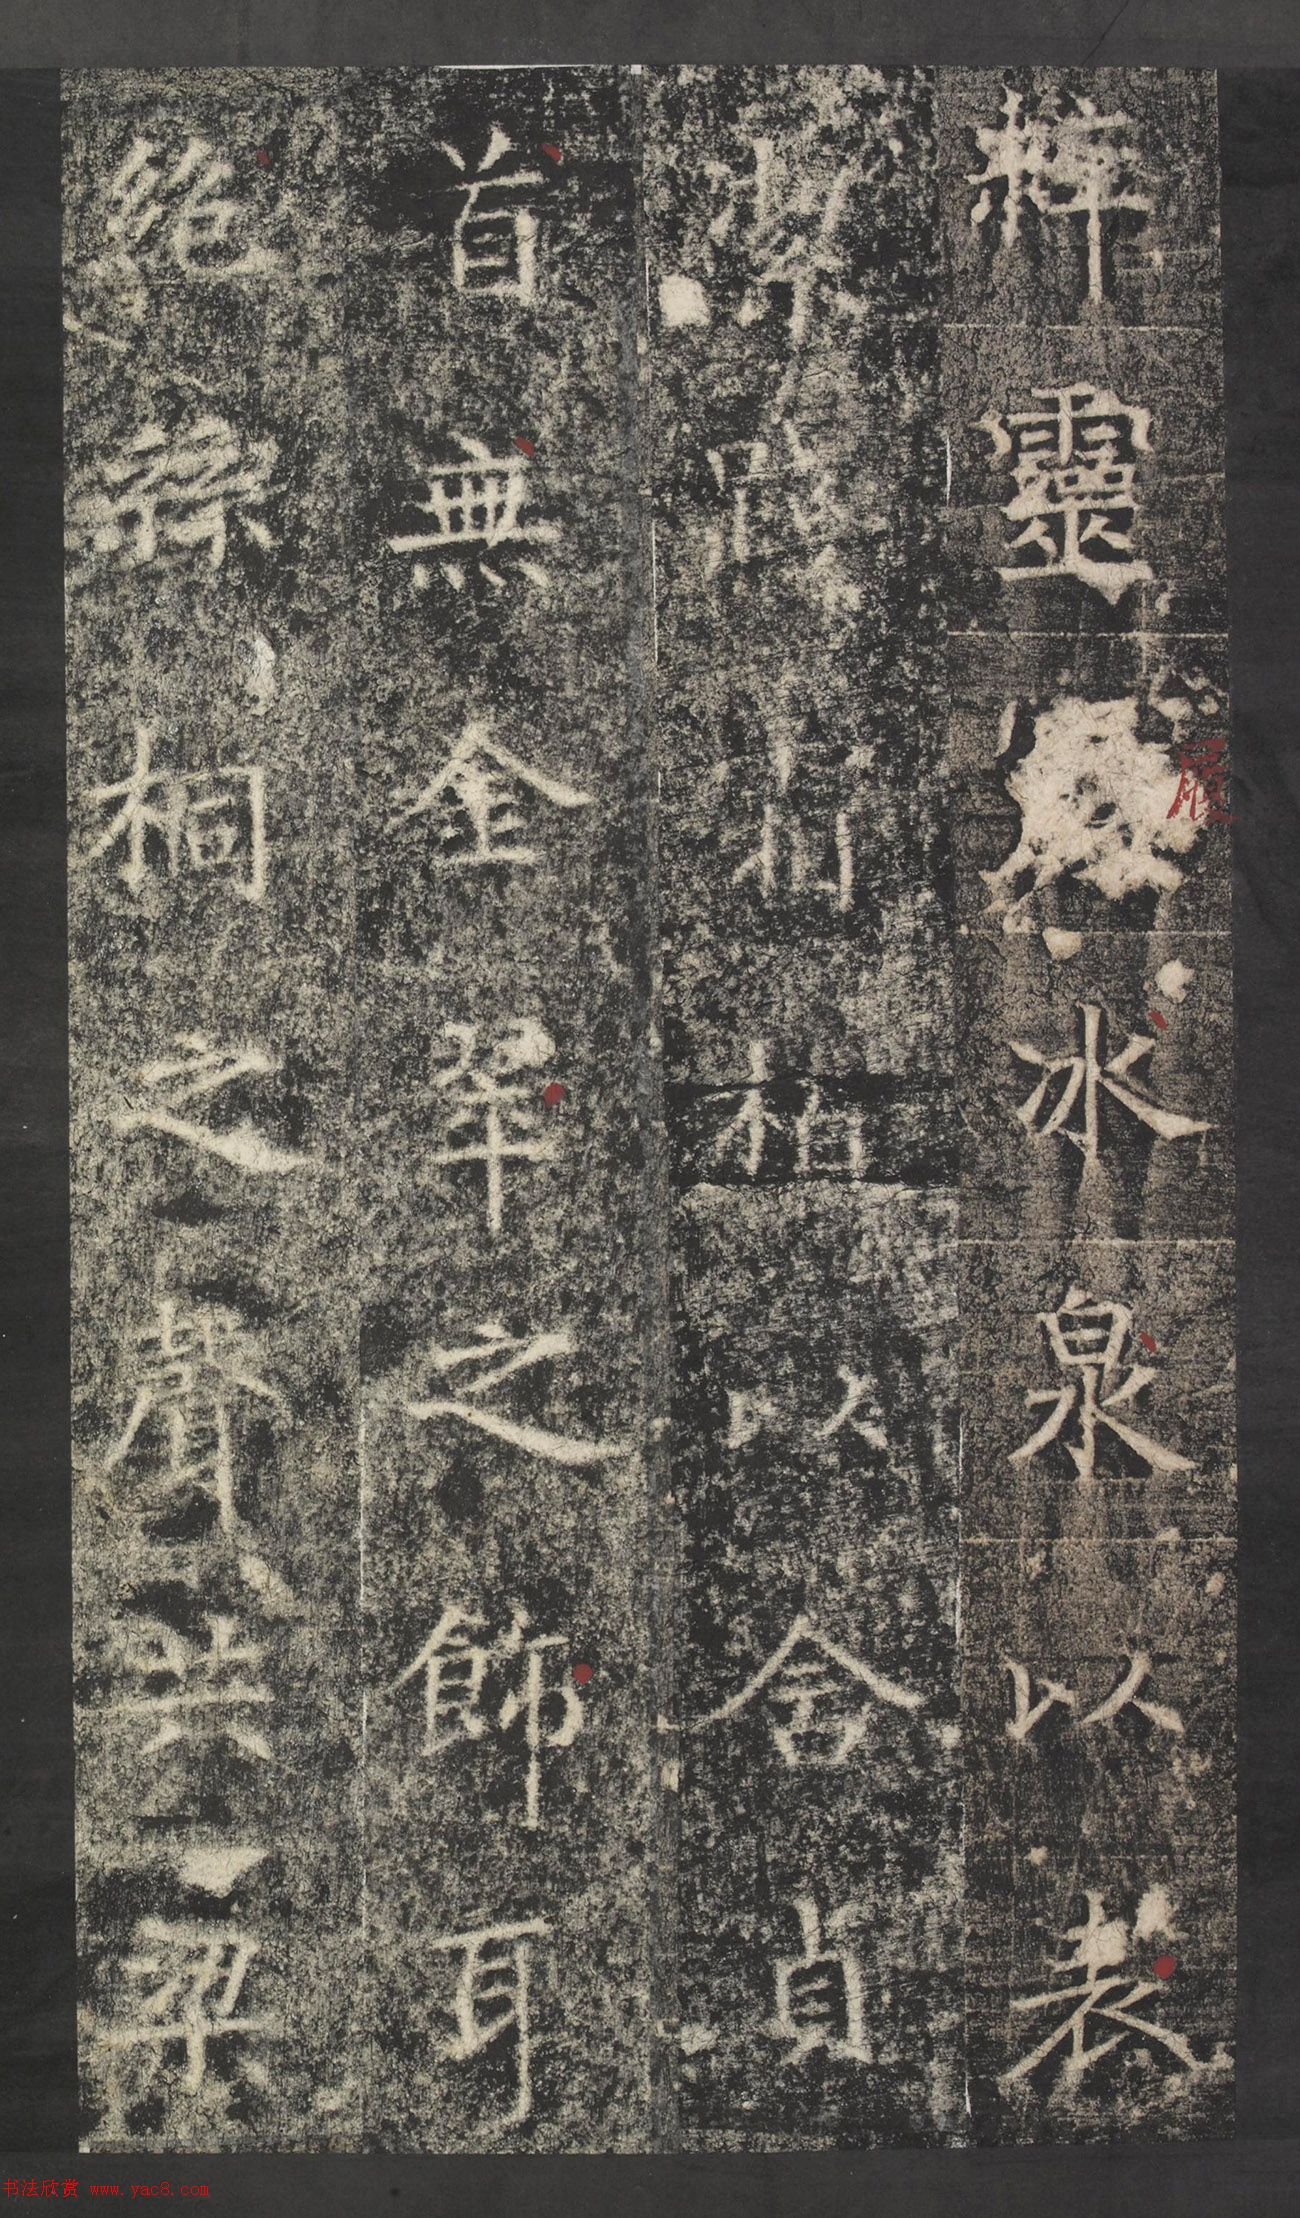 粹靈履水泉以表
潔蹈松柏以含貞
首無金翠之飾耳
絕絲桐之聲共梁
履
书法欣赏 www.yac8.com